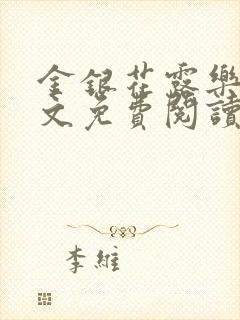 金銀花露樂
文免費閱讀
李維